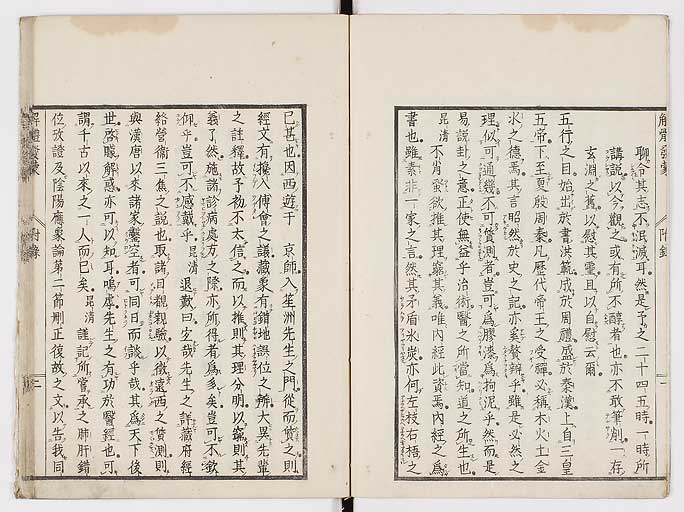 聊令其志不泯滅耳然是予之二十四五時一時所
講説以今觀之或有所不醇者也亦不敢筆削一存
玄淵之舊以慰其靈且以自慰云爾
五行之目始出於書洪範成於周禮盛於秦漢上自三皇
五帝下至夏殷周秦凡歷代帝王之受禪必稱木火土金
水之德焉其言昭然於史之記亦奚贅辨乎雖是必然之
理似可通幾不可質測者豈可爲膠漆爲拘泥乎然而是
易説卦之意正使無益乎治術醫之所當知道之所生也
昆清不肖蚤欲推其理竊其義唯内經此資焉内經之爲
書也雖素非一家之言然其矛盾氷炭亦何左枝右梧之
已甚也因西遊于 京師入笙洲先生之門從而質之則
經文有攙入傅會之議藏象有錯地誤位之辨大異先輩
之註釋故予初不太信之而以推則其理分明以竊則其
義了然施諸診病處方之際亦所得者爲多矣豈可不欽
仰乎豈可不感戴乎昆清退歎曰宏哉先生之詳藏府經
絡營衞三焦之説也取諸目覩親驗以徴遠西之質測則
與漢唐以來諸家鑿空者可同日而談乎哉其爲天下後
世啓曚解惑亦可以知耳嗚虖先生之有功於醫經也可
謂千古以來之一人而已矣昆清謹記所嘗承之肺肝錯
位攷證及陰陽應象論第二節刪正復故之文以告我同
解體發蒙
附錄